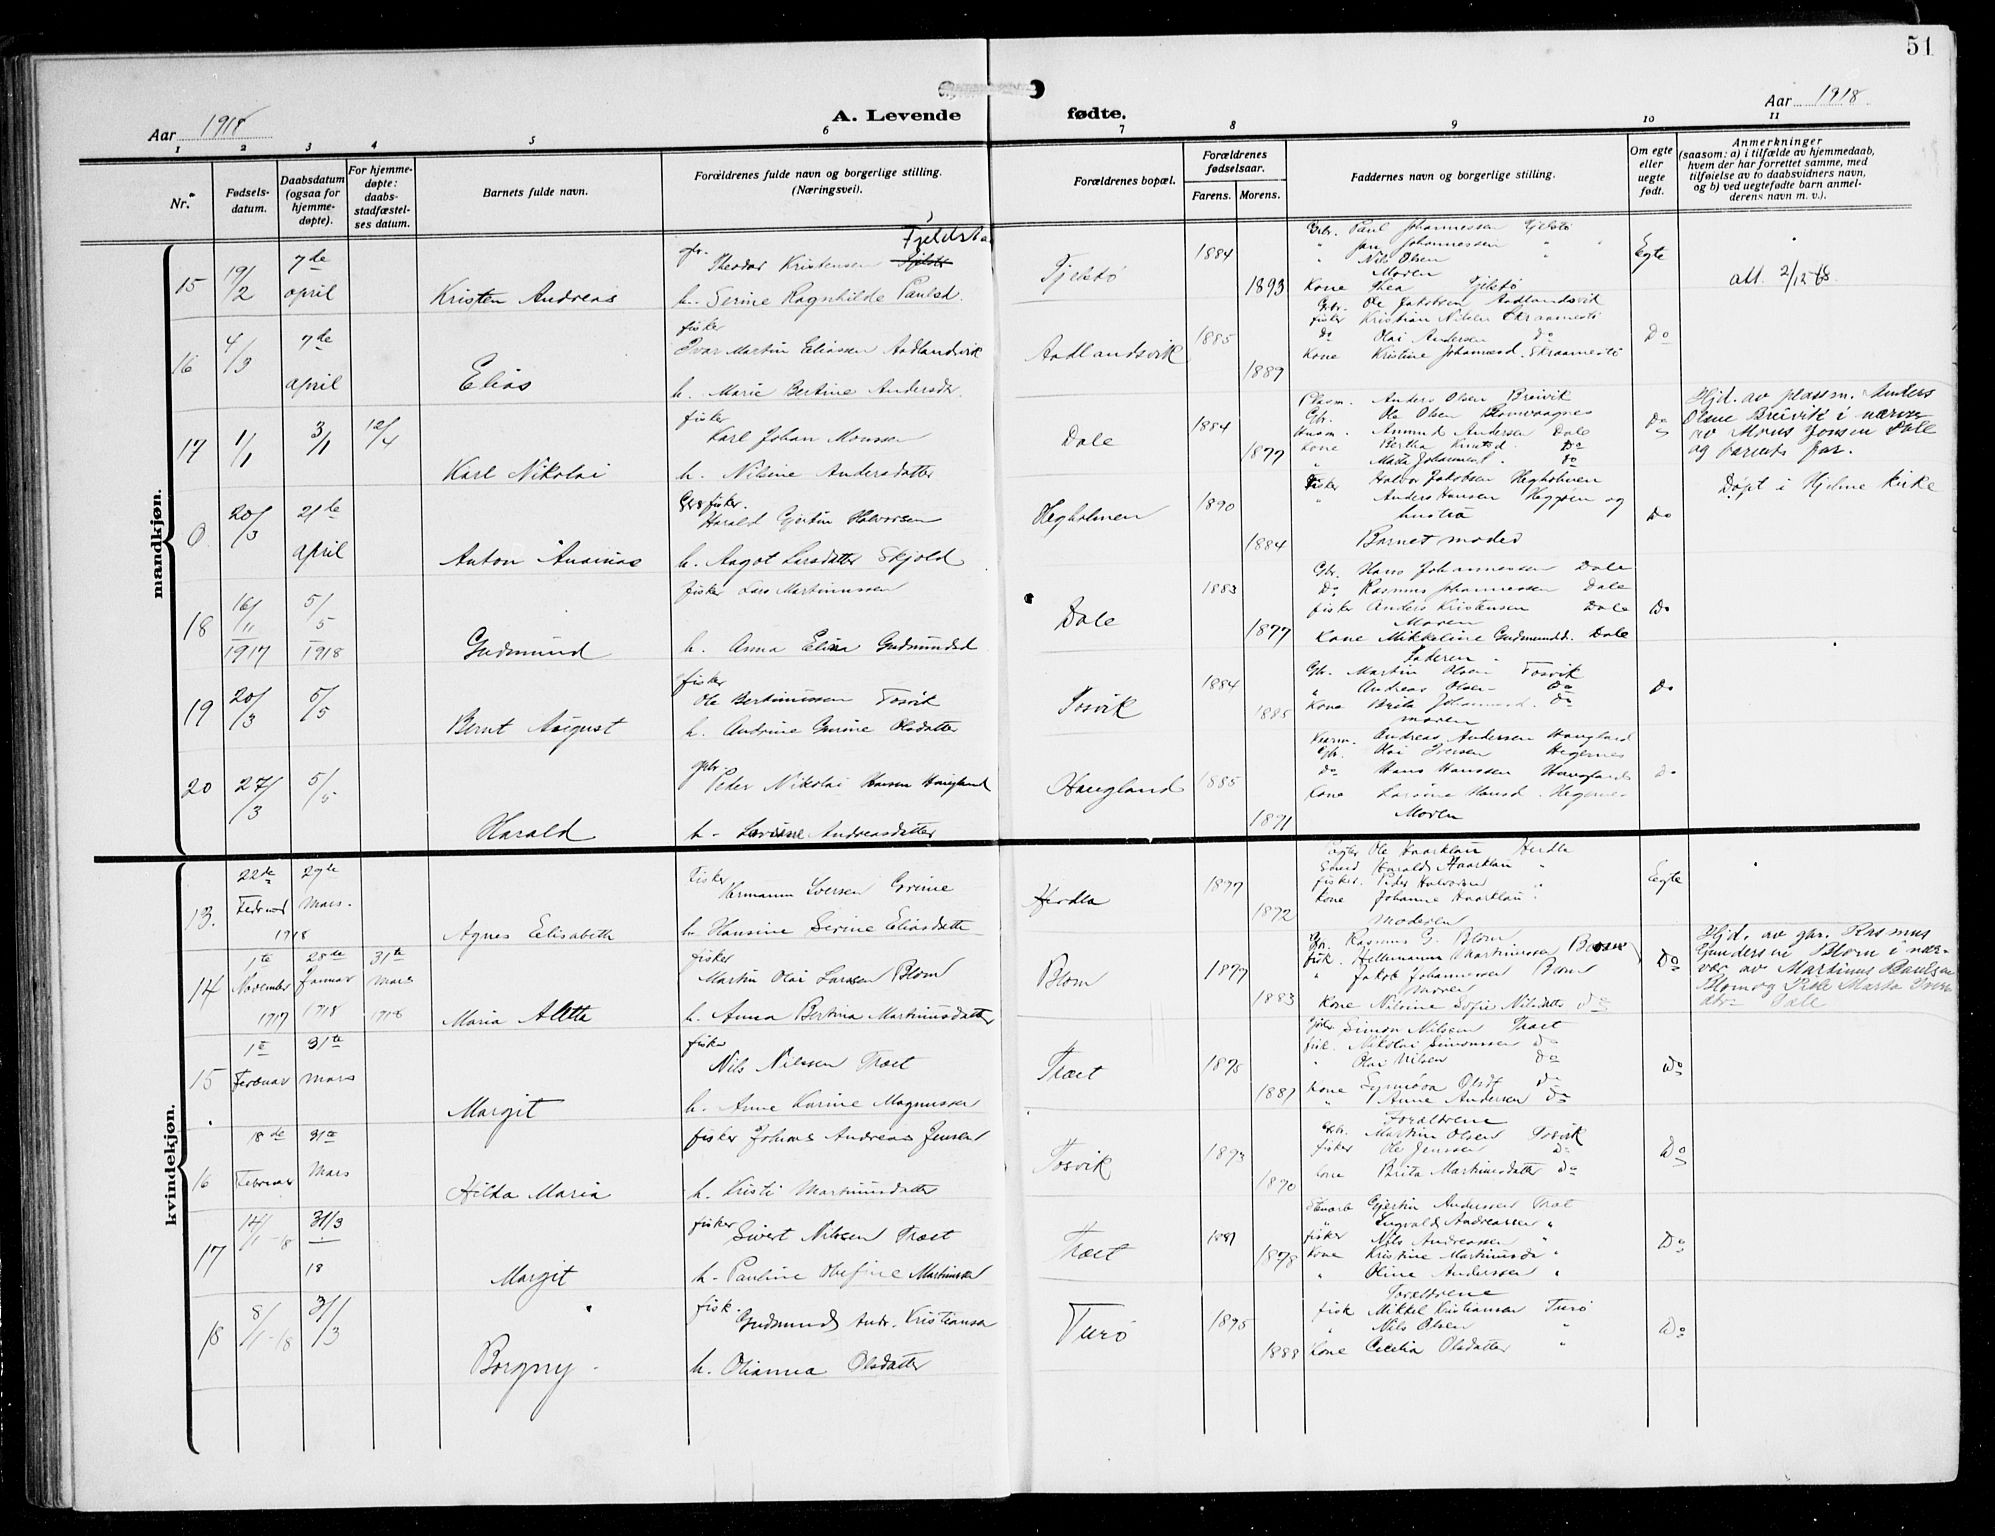 51
Aar 1918
A. Levende fødte.
Aar 1918
1 2 3 4 5 6 7 8 9 10 11
Nr.
Fødsels-
datum.
Daabsdatum
(ogsaa for
hjemme-
døpte).
For hjemme-
døpte:
daabs-
stadfæstel-
ses datum.
Barnets fulde navn.
Forældrenes fulde navn og borgerlige stilling.
(Næringsvei).
Forældrenes bopæl.
Forældrenes
fødselsaar.
Farens. Morens.
Faddernes navn og borgerlige stilling.
Om egte
eller
uegte
født.
Anmerkninger
(saasom: a) i tilfælde av hjemmedaab,
hvem der har forrettet samme, med
tilføielse av to daabsvidners navn,
og b) ved uegtefødte barn anmel-
derens navn m. v.).
mandkjøn.
15 19/2 7de april
Kristen Andreas
Theodor Kristensen
h. Serine Ragnhilde Paulsd.
Tjelstø
1884 1893
Gbr. Paul Johannessen Tjelstø
Johannessen
Nils Olsen
Moren
Kone Thea Tjelstø
Egte
att. 2/12-68
16 4/3 7de april
Elias
fisker
Ivar Martin Eliassen Aadlandsvik
h. Marie Bertine Andersdtr.
Aadlandsvik
1885 1889
Gbr. Ole Jakobsen Aadlandsvik
fisker Kristian Nilsen
Do Olai Andersen Do
Kone Kristine Johannesd. Skraamestø
Do
17 1/1 3/1 12/4
Karl Nikolai
fisker
Karl Johan Monssen
h. Nilsine Andersdatter
Dale
1884 1877
Plasm. Anders Olsen Breivik
Gbr. Ole Olsen Blomvaagnes
Husm. Amund Andersen Dale
Kone Bertha Knutsd. Do
Do
Hjd. av plassm. Anders
Olsen Breivik i nærv.
av Mons Jonsen Dale
og barnets far.
0 20/3 21de april
Anton
fisker.
Harald Gjertin Halvorsen
h. Aagot Larsdatter Skjold
Hegholmen
1890 1884
fisker Halvor Jakobsen Hegholmen
Anders Hansen og
hustru
Barnet moder
Do
Døpt i Hjelme kirke
18 16/11 1917 5/5 1918
Gudmund
fisker Lars Martinussen
h. Anna Elina Gudmundsd
Dale
1883 1877
Gbr. Hans Johannessen Dale
Do Rasmus Johannessen Dale
fisker Anders Kristensen Dale
Moren
Kone Mikkeline Gudmundsd. Dale
Faderen
Do
19 20/3 5/5
Bernt August
fisker
Ole Bertinussen Tosvik
h. Andrine Gurine Olsdatter
Tosvik
1884 1885
Gbr. Martin Olsen Tosvik
Andreas Olsen Do
Kone Brita Johannesd. Do
moren
Do
20 27/3 5/5
Harald
gbr.
Peder Nikolai Hansen Haugland
h. Andreasdatter
Haugland
1885 1891
Andreas Andersen Haugland
Gbr. Olai Iversen Hegernes
Do Hans Hanssen Haugland
Kone Larsine Hansd. Hegernes
Moren
Do
kvindekjøn.
13. 22de Februar 1918 29de Mars.
Agnes Elisabeth
Fisker
Hermann Iversen
h. Hansine Serine Eliasdatter
Herdla
1877 1872
Ole Haarklau Herdla
Harald Haarklau
fisker. Peder Halvorsen
Kone Johanne Haarklau
Moderen
Egte
14 1te November 1917 28de Januar 1918 31te Mars 1918
Maria Aletta
fisker
Martin Olai Larssen Blom
h. Anna Bertina Martinusdatter
Blom
1877 1883
Gbr. Rasmus G. Blom
fisk. Hellemann Martinussen
Jakob Johannessen Blom
Moren
Kone Nilsine Sofie Nilsdatter Do
Do
Hjd. av gbr. Rasmus
Gundersen Blom i nær-
vær av Martinus Paulsen
Blom og Marta
Dale
15 1te Februar 31te Mars
Margit
fisker
Nils Nilssen Træt
h. Anne Karine Magnussen
Træt
1875 1881
Gbr. Simon Nilsen Træt
fisk. Nikolai Simonssen Do
Olai Nilsen Do
Kone Synnøva Olsdt Do
Anne Andersen Do
Forældrene
Do
16 18de Februar 31te Mars
Hilda Maria
fisker Johans Andreas Jensen
h. Kristi Martinusdatter
Tosvik
1893 1890
Gbr. Martin Olsen Tosvik
fisker Ole Jenssen Do
Kone Brita Martinusdatter Do
Do
17 14/1-18 31/3 18
Margit
fisker
Sivert Nilssen Træt
h. Pauline Olefine Martinsen
Træt
1881 1878
Gjertin Andersen Træt
Ingvald Andreassen
fisker Nils Andreassen
Kone Kristine Martinusda
Oline Andersen
Forældrene
Do
18 8/1-18 31/3
Borgny
fisk.
Gudmund Andr. Kristiansen
h. Olianna Olsdatter
Turø
1895 1888
fisk Mikkel Kristiansen Turø
Nils Olsen
Kone Cecilia Olsdatter
Do